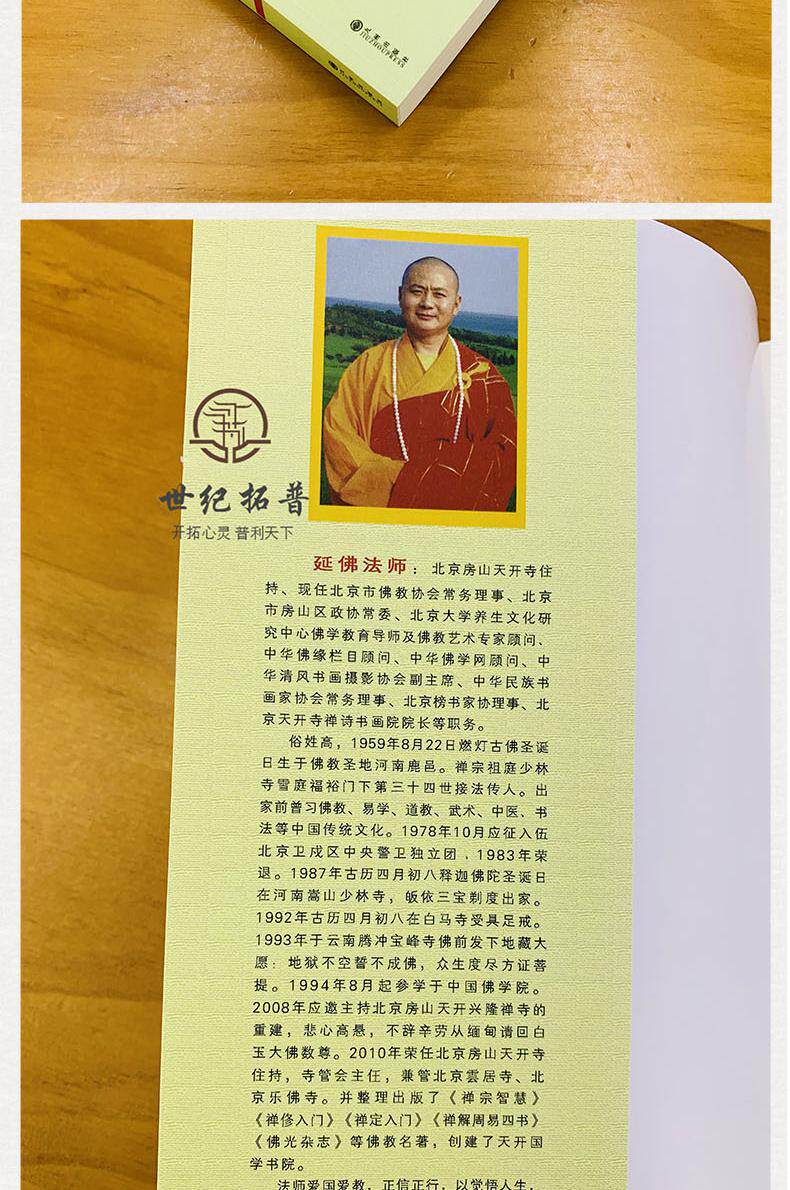 九州出版社
JIUZHOUPRESS
九州出版社
世纪拓普
开拓心灵 普利天下
延佛法师：北京房山天开寺住
持、现任北京市佛教协会常务理事、北京
市房山区政协常委、北京大学养生文化研
究中心佛学教育导师及佛教艺术专家顾问、
中华佛缘栏目顾问、中华佛学网顾问、中
华清风书画摄影协会副主席、中华民族书
画家协会常务理事、北京榜书家协理事、北
京天开寺禅诗书画院院长等职务。
俗姓高，1959年8月22日燃灯古佛圣诞
日生于佛教圣地河南鹿邑。禅宗祖庭少林
寺雪庭福裕门下第三十四世接法传人。出
家前曾习佛教、易学、道教、武术、中医、书
法等中国传统文化。1978年10月应征入伍
北京卫戍区中央警卫独立团，1983年荣
退。1987年古历四月初八释迦佛陀圣诞日
在河南嵩山少林寺，皈依三宝剃度出家。
1992年古历四月初八在白马寺受具足戒。
1993年于云南腾冲宝峰寺佛前发下地藏大
愿：地狱不空誓不成佛，众生度尽方证菩
提。1994年8月起参学于中国佛学院。
2008年应邀主持北京房山天开兴隆禅寺的
重建，悲心高悬，不辞辛劳从缅甸请回白
玉大佛数尊。2010年荣任北京房山天开寺
住持，寺管会主任，兼管北京雲居寺、北
京乐佛寺。并整理出版了《禅宗智慧》
《禅修入门》《禅定入门》《禅解周易四书》
《佛光杂志》等佛教名著，创建了天开国
学书院。
法师爱国爱教，正信正行，以觉悟人生，